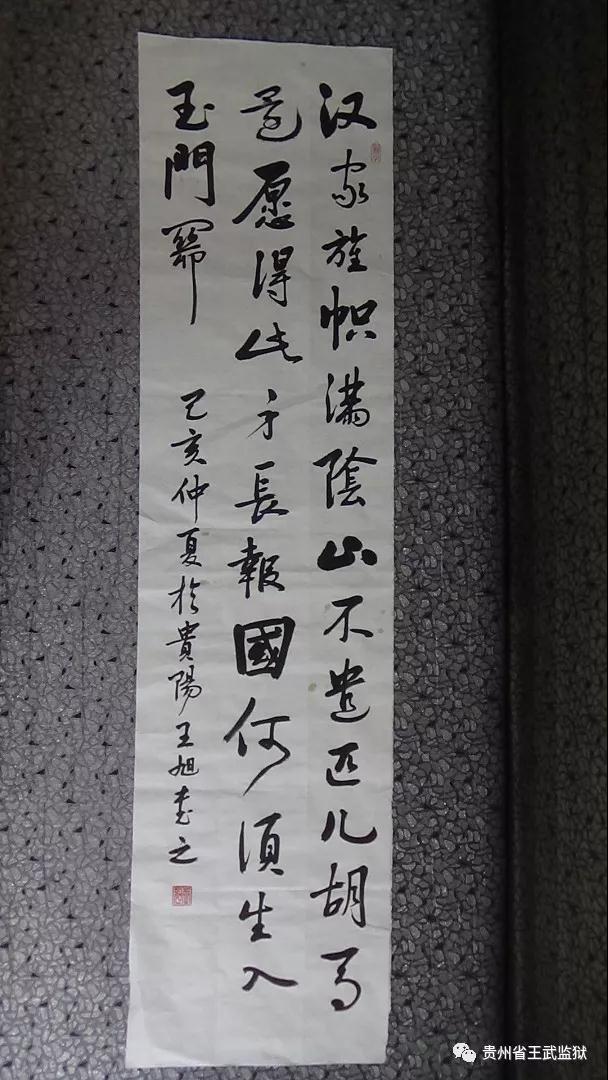 汉家旌帜满陰山不遣匹儿胡马
还愿得此身長報國何須生入
玉門關
己亥仲夏於貴陽王旭書之
贵州省王武监狱